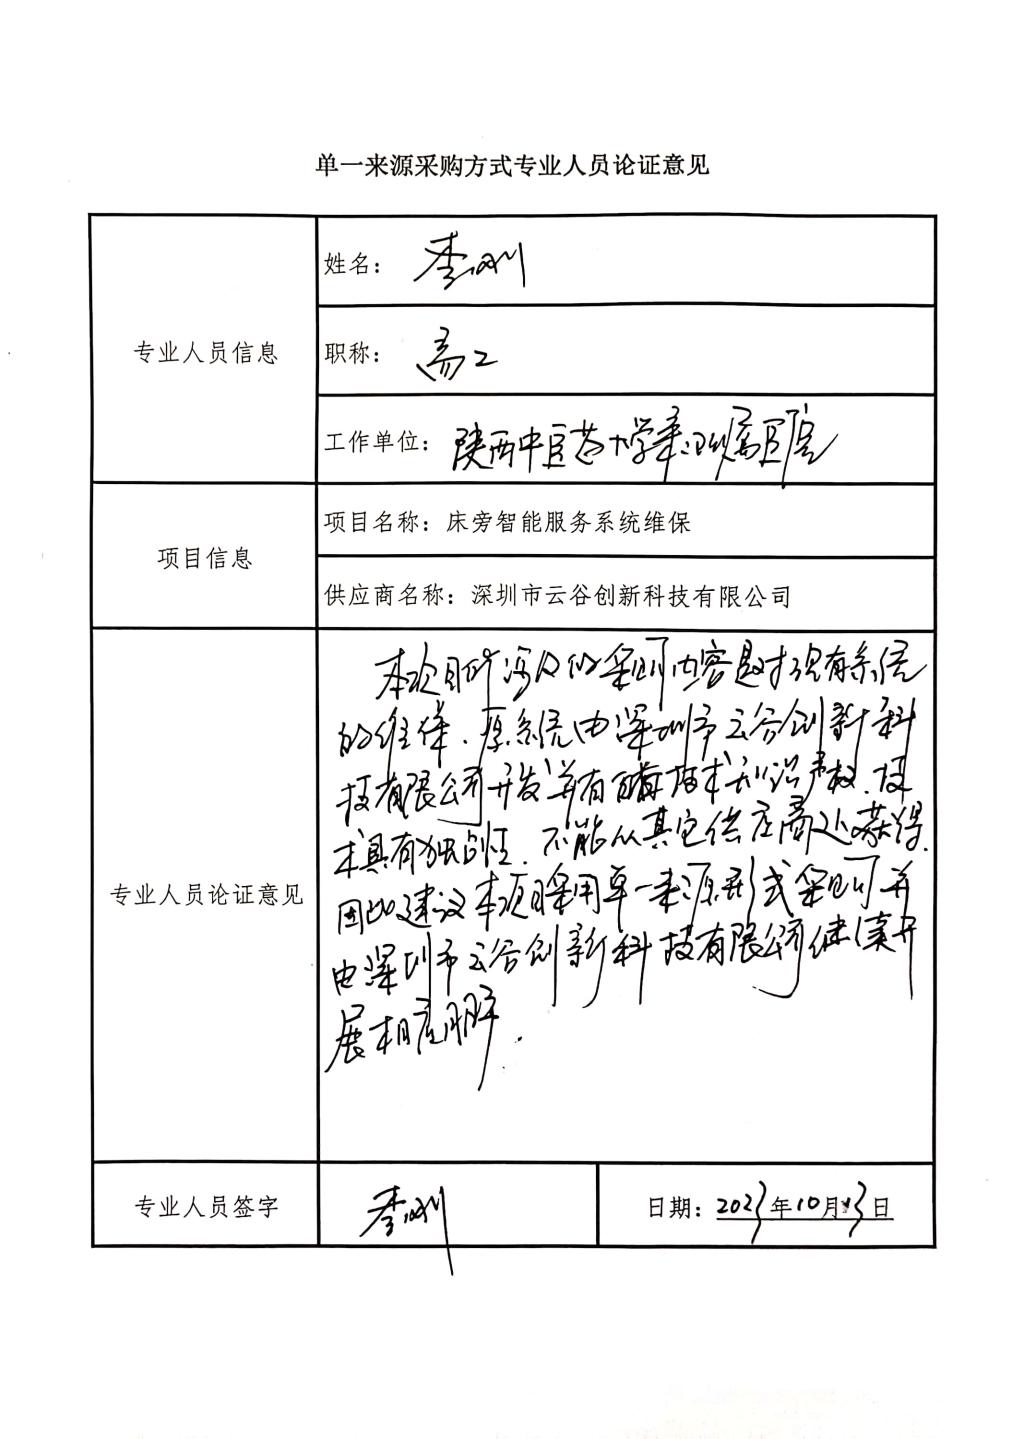 单一来源采购方式专业人员论证意见
专业人员信息
姓名：李刚
职称：高工
工作单位：陕西中医药大学第二附属医院
项目信息
项目名称：床旁智能服务系统维保
供应商名称：深圳市云谷创新科技有限公司
专业人员论证意见
本次目所涉及的采购内容是对现有系统
的维保．原系统由深圳市云谷创新科
技有限公司开发并有技术知识产权．技
术具有独占性．不能从其它供应商处获得．
因此建议本项目采用单一来源形式采购并
由深圳市云谷创新科技有限公司继续开
展相应服务．
专业人员签字
李刚
日期：2023年10月13日